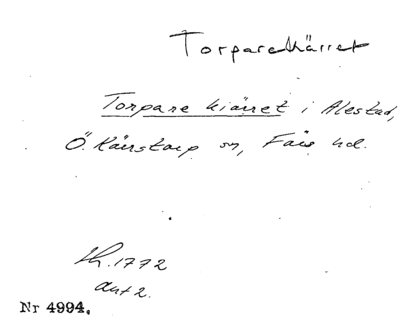 Torparekärret
Torpare kiärret i Alestad,
Ö. Kärstorp sn, Färs hd.
Lh. 1772
akt 2.
Nr 4994.